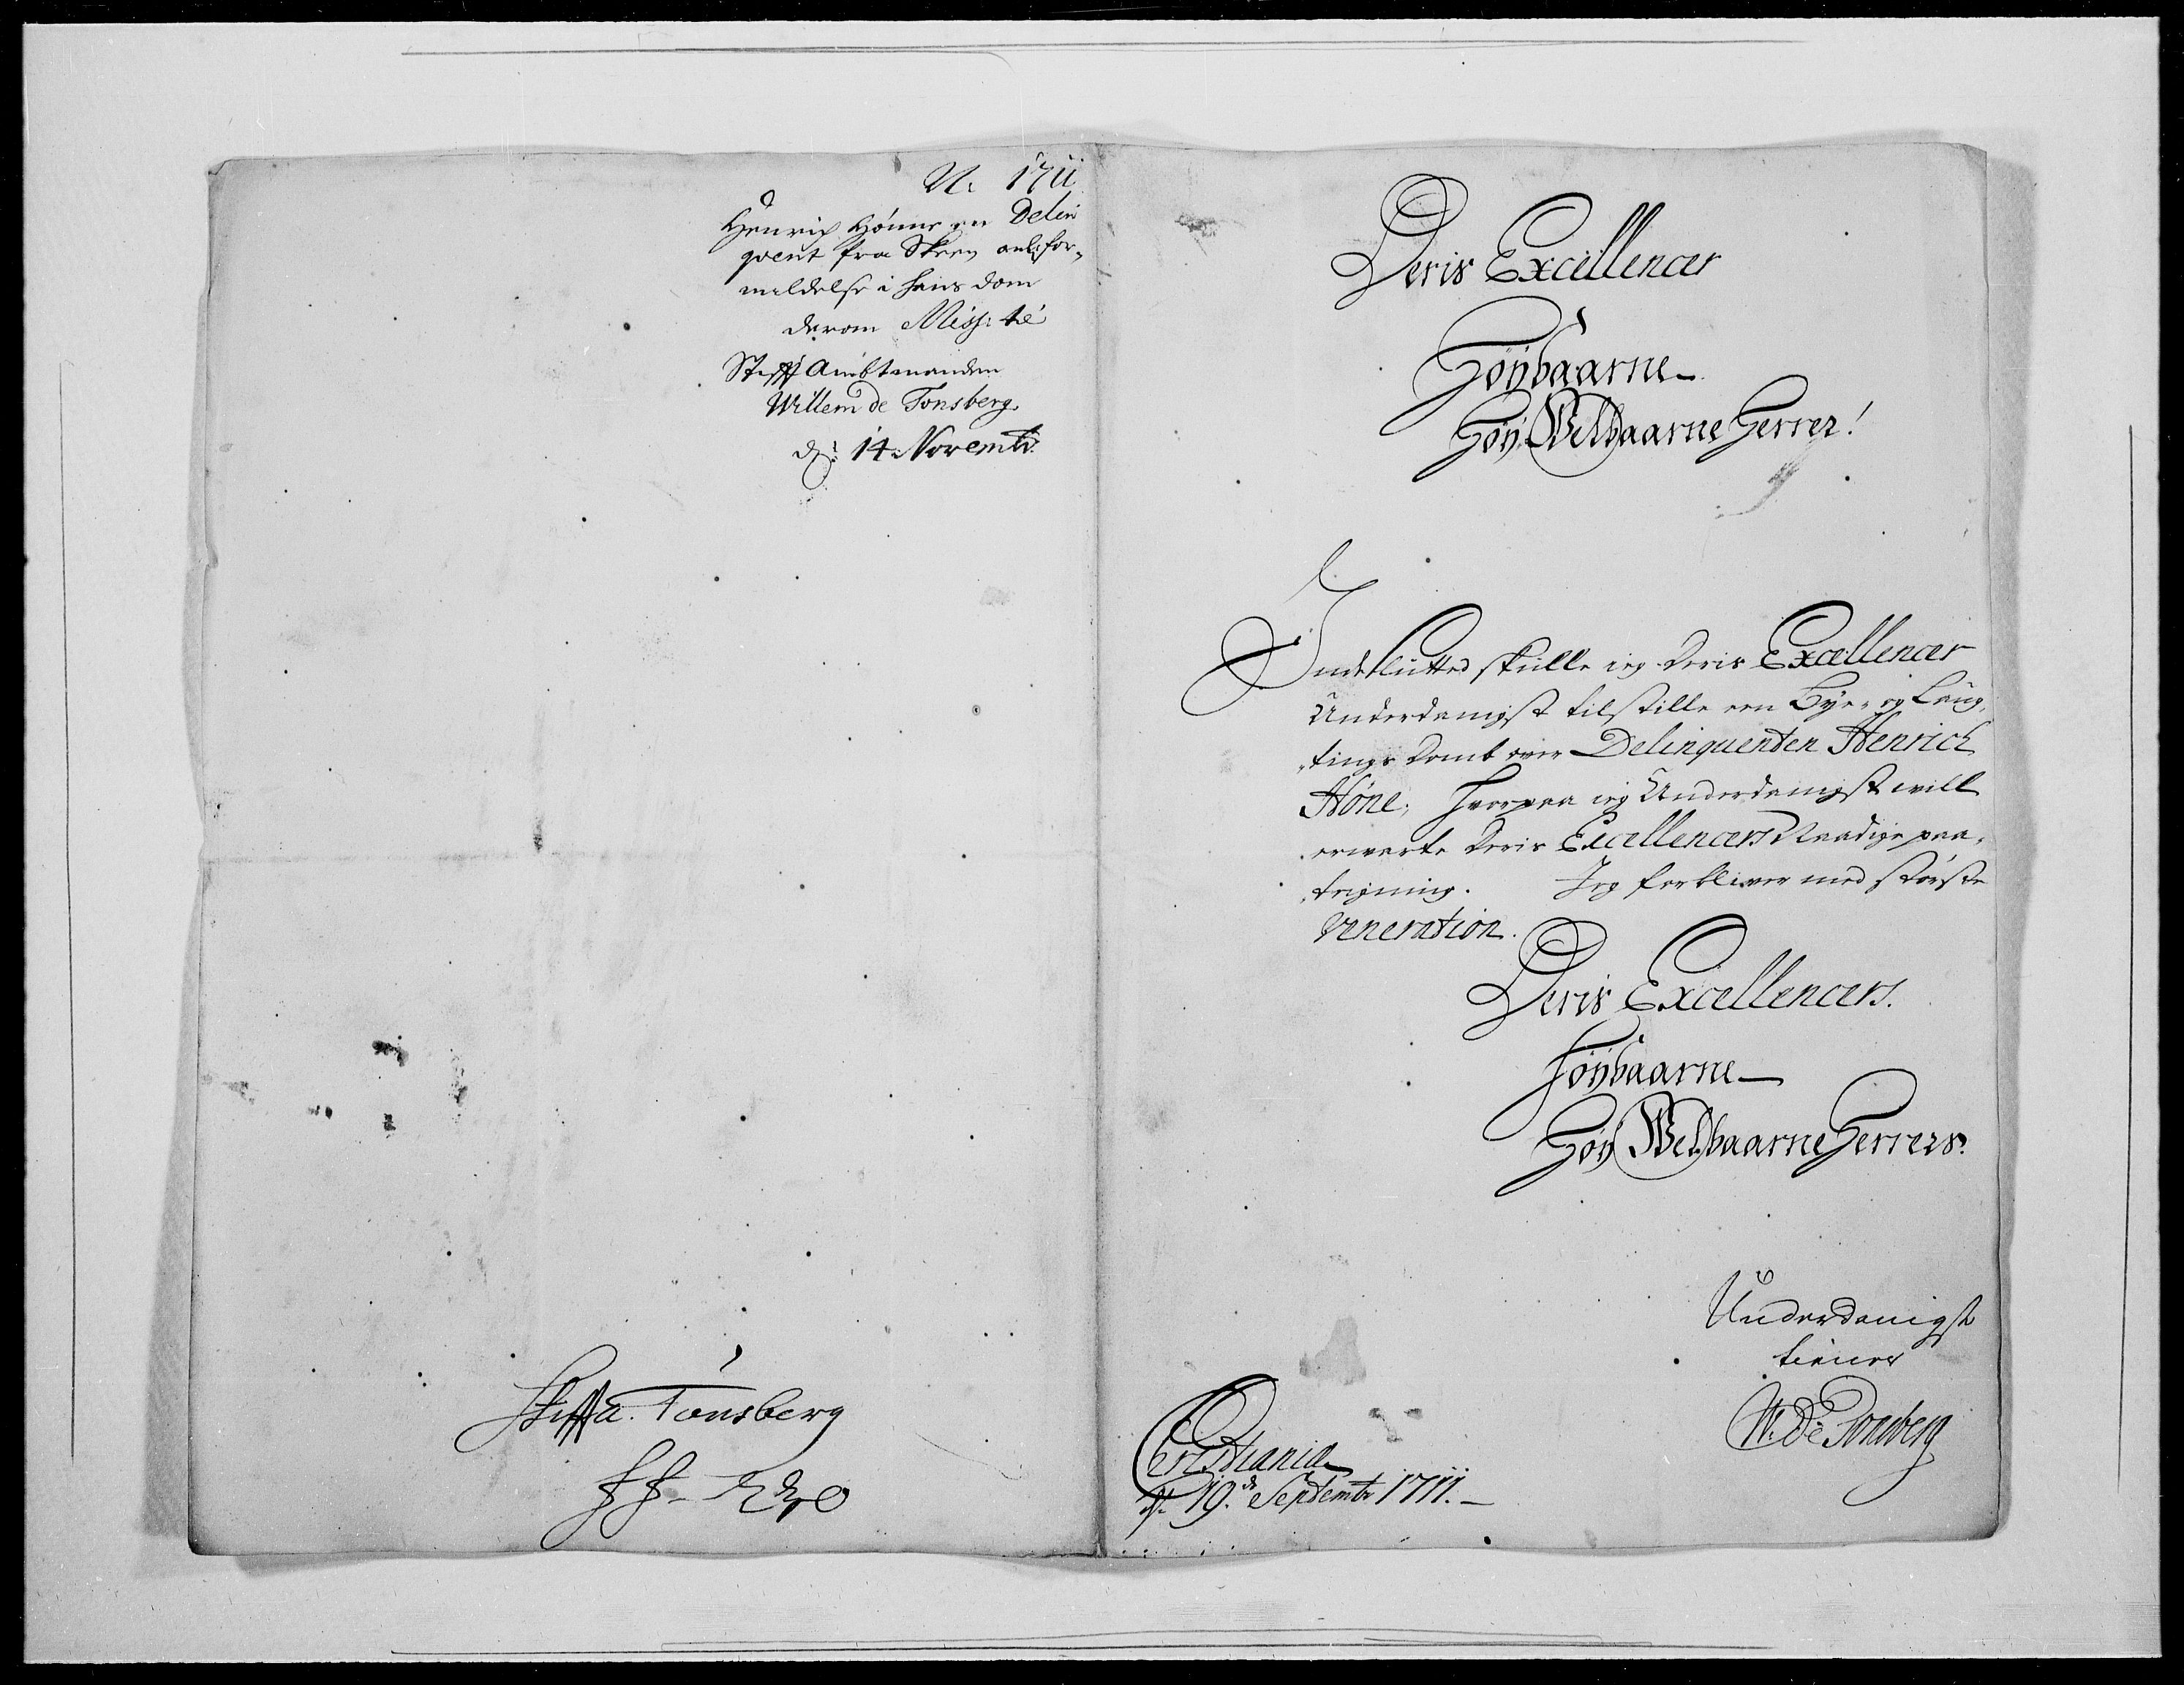 A: 1711
Henrich Hönne en Delin
qvent fra Skeen anl: for,
mildelse i hans dom
derom Miss: til
Stifft Ambtmanden
Willem de Tonsberg.
d: 14 Novemb:
Stiffta. Tonsberg
Deris Excellencer
Höybaarne
Höy Welbaarne Herrer!
Indslutted skulle ieg Deris Excellencer
Underdanigst tilstille een Bye- og Laug,
,tings Domb over Delinquenten Henrich
Höne; hvorpaa ieg Underdanigst will
erwarte Deris Excellencers Naadige paa,
,tegning. Jeg forbliver med störste
veneration.
Deris Excellencers.
Höybaarne
Höy Welbaarne Herrers.
Underdanigste
tienner
W. De Tonsberg
Cristiania
d: 19.de Septembr 1711.